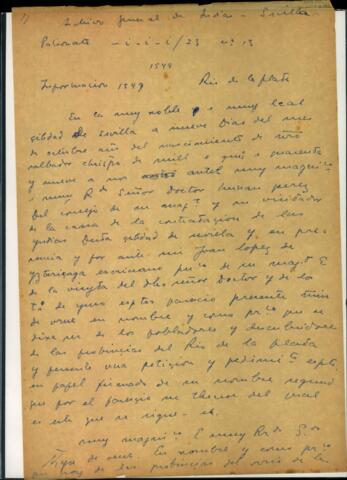 1) Archivo General de Indias - Sevilla
Patronato - 1-1-1/23 nº 13
1549
Informacion 1549 Rio de la plata
En la muy noble e muy leal
cibdad de Sevilla a nueve dias del mes
de otubre año del nascimiento de nro
salbador chrispo de mill e qnis e quarenta
y nueve años antel muy magnico
e muy Rdo Señor Doctor hernan perez
del consejo de su magt y su visitador
de la casa de la contratacion de las
yndias desta cibdad de sevilla y en pre
sencia y por ante mi Juan lopez de
escrivano puco de su magt E
de la visyta del dho señor Doctor y de lo
de yuso escpto parescio presente
de en nombre y como que se
dixo ser de los pobladores y descubridores
de las provincias del Rio de la plata
y presento una peticion y pedimito escpto
en papel firmado de su nombre segund
que por el parescia su thenor del qual
es este que se sigue. -
muy magnico E muy Rdo Sor
de En nombre y como
de las provincias del rrio de la